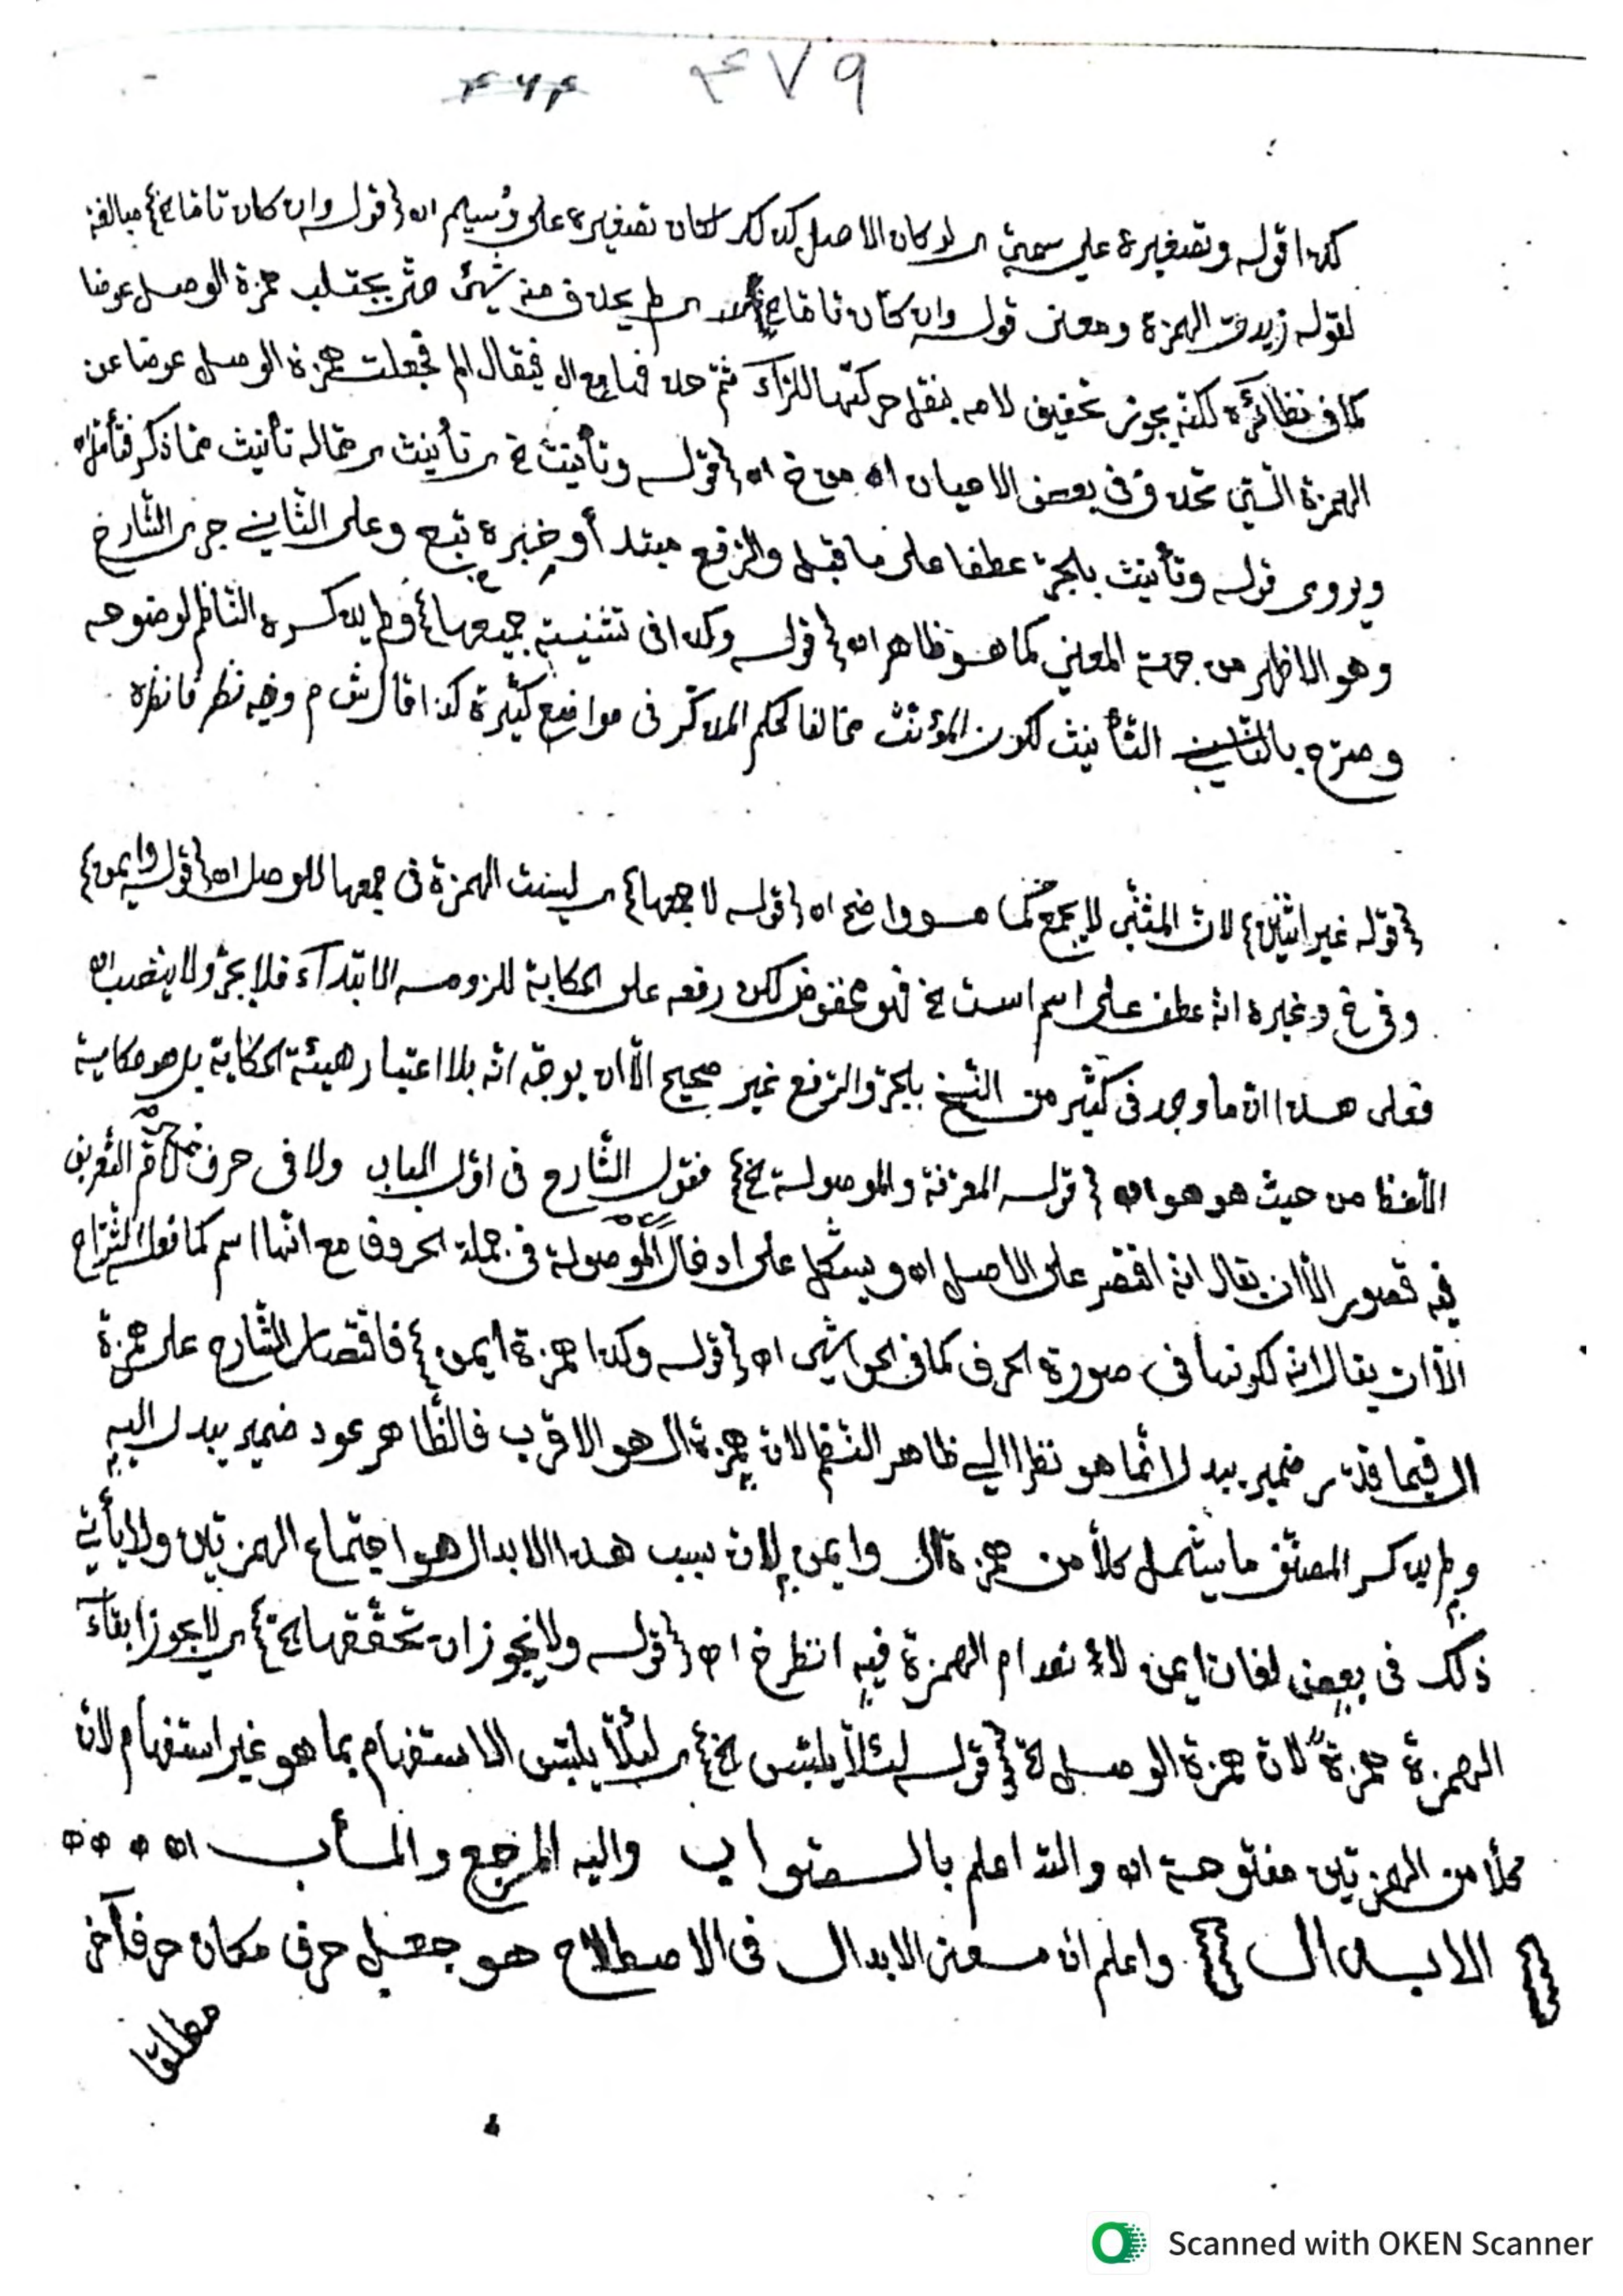 ٤٧٩ ٤٦٤
كذا قوله وتصغيره على سمي ى لو كان الاصل كذلك لكان تصغيره على وُسيم اه {قوله وان كان تاما الخ} مبالغة
لقوله زيدت الهمزة ومعنى قوله وان كان تاما الخ ى لم يحذف منه شيئ حتّى يجتلب همزة الوصل عوضا
كما فى نظائره لكنه يجوز تخفيف لامه بنقل حركتها للرّاء ثمّ حذفها مع ال فيقال المر فجعلت همزة الوصل عوضا عن
الهمزة الّتى تحذف فى بعض الاحيان اه من خ اه {قوله وتأنيث الخ ى تأنيث ى حاله تأنيث ما ذكر فتأمّل اه
ويروى قوله وتأنيث بالجرّ عطفا على ما قبله والرّفع مبتدأ وخبره تبع وعلى الثّاني جرى الشّارح
وهو الاظهر من جهة المعنى كما هو ظاهر اه {قوله وكذا فى تثنية جميعها} ولم يذكره النّاظم لوضوحه
وصرّح بالثّاني التّأنيث لكون المؤنّث مخالفا لحكم المذكّر فى مواضع كثيرة كذا قال ش م وفيه نظر فانظره
{قوله غير اثنين} لانّ المثنّى لا يجمع كما هو واضح اه {قوله لا جمعها} ى ليست الهمزة فى جمعها للوصل اه {قوله وايمن}
وفى خ وغيره انّه عطف على اسم است الخ فهو مخفوض لكن رفعه على الحكاية للزومه الابتداء فلا يجرّ ولا ينصب اه
فعلى هذا انّ ما وجد فى كثير من النّسخ بالجرّ والرّفع غير صحيح الّا ان يوجّه انّه بلا اعتبار هيئة الحكاية بل هو حكاية
اللّفظ من حيث هو هو اه {قوله المعرّفة والموصولة الخ} فقول الشّارح فى اوّل الباب ولا فى حرف غير لام التّعريف
فيه قصور الّا ان يقال انّه اقتصر على الاصل اه ويشكل على ادخال الموصولة فى جملة الحروف مع انّها اسم كما فعله الشّرّاح
الّا ان يقال انّه لكونها فى صورة الحرف كما فى الحواشى اه {قوله وكذا همزة ايمن} فاقتصار الشّارح على همزة
ال فيما قدّر ضمير يبدل انّما هو نظرا الى ظاهر النّظم لانّ همزة ال هو الاقرب فالظّاهر عود ضمير يبدل اليه
ولم يذكر المصنّف ما يشمل كلّا من همزة ال وايمن لانّ سبب هذا الابدال هو اجتماع الهمزتين ولا يأتى
ذلك فى بعض لغات ايمن لانعدام الهمزة فيه انظر خ اه {قوله ولا يجوز ان تحقّقها الخ} ى لا يجوز ابقاء
الهمزة همزةً لانّ همزة الوصل الخ {قوله لئلّا يلتبس الخ} ى لئلّا يلتبس الاستفهام بما هو غير استفهام لانّ
كلّا من الهمزتين مفتوحة اه والله اعلم بالصّواب واليه المرجع والمأب اه ه ه ه
{ الابدال } واعلم انّ معنى الابدال فى الاصطلاح هو جعل حرف مكان حرف آخر
مطلقا
Scanned with OKEN Scanner